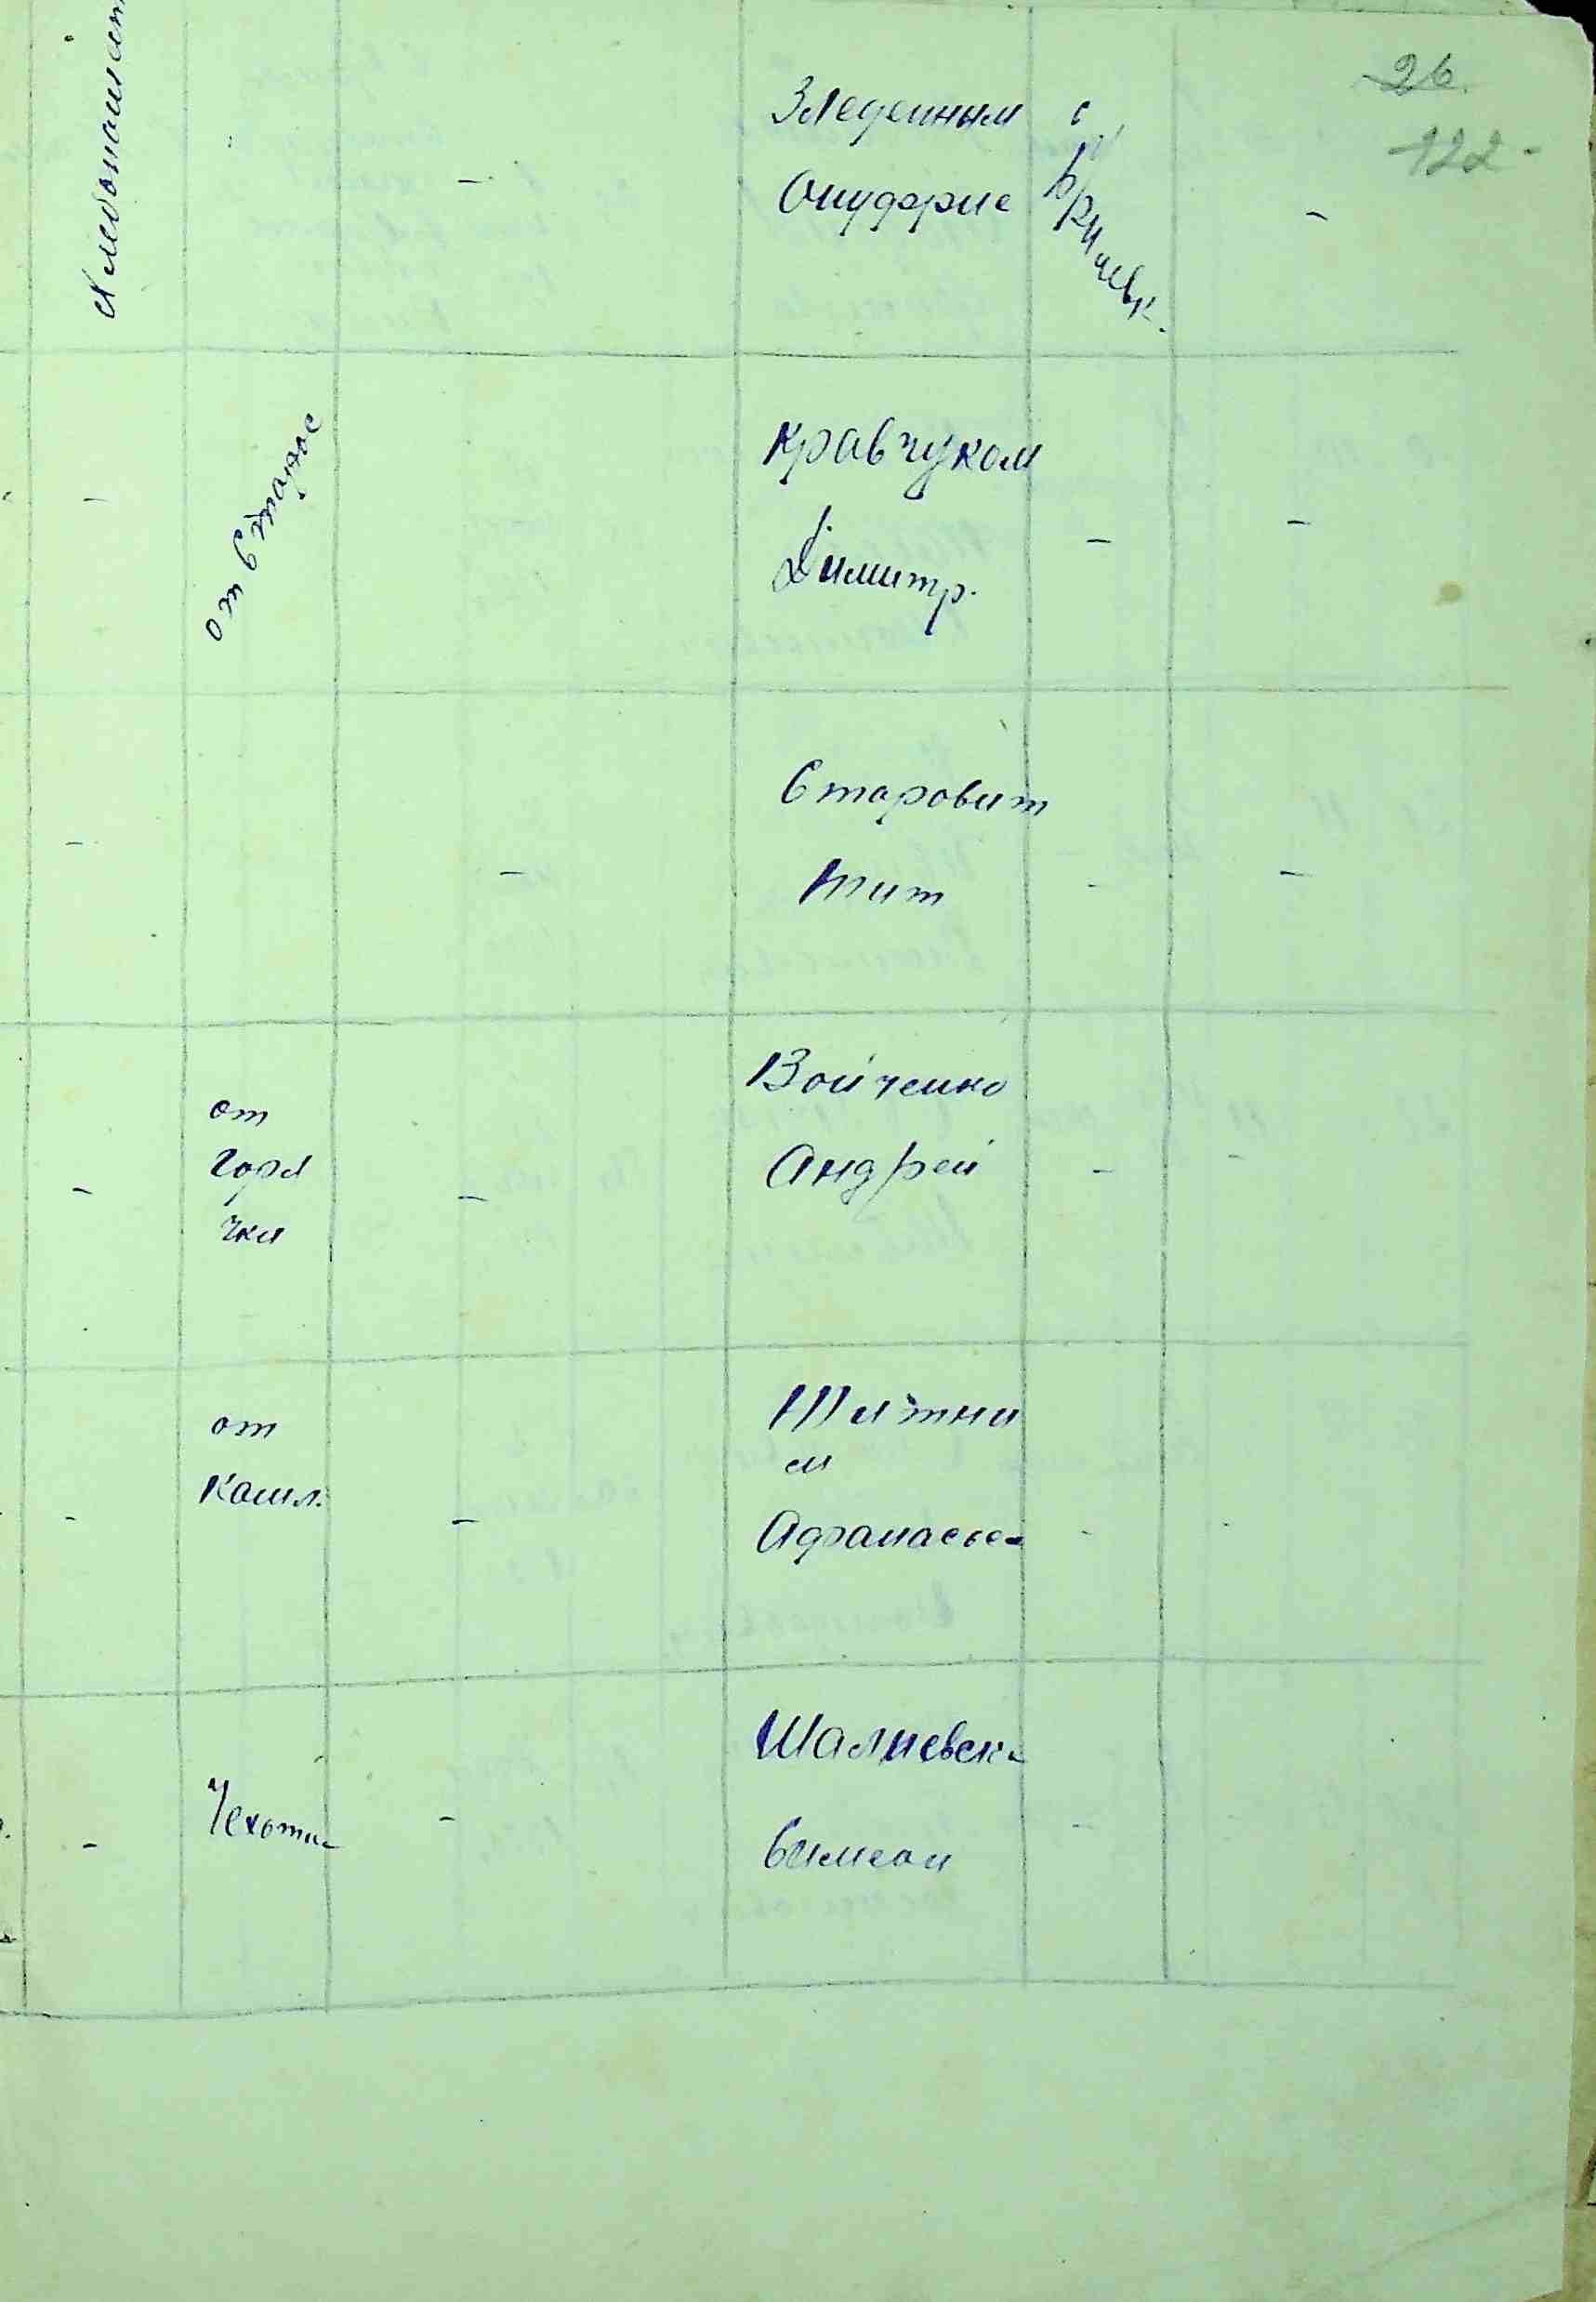 26.
122
Хлебопашит
Зледенным
Онуфрие
с
Бричевк.
от Старос
Кравчуком
Димитр.
Старовит
Тит
от
горя
чки
Войченко
Андрей
от
Кашл.
Шлятни
м
Афанасие
Чехотки
Шалиевск
Симеон